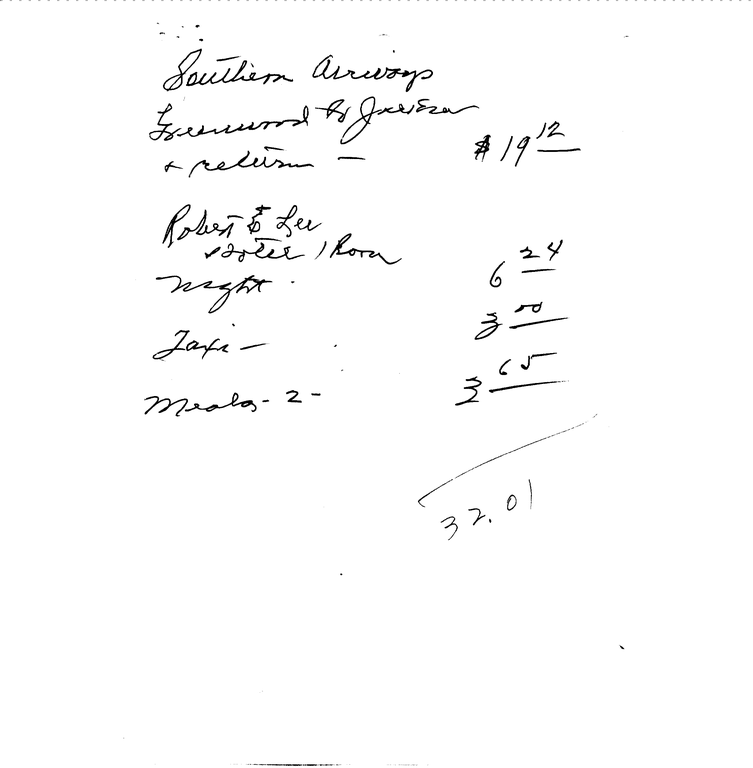 Southern Airways
Greenwood to Jackson
+ return — $19 12
Robert E Lee
Hotel 1 Room
Night 6 24
Taxi — 3 00
Meals - 2 - 3 65
32.01